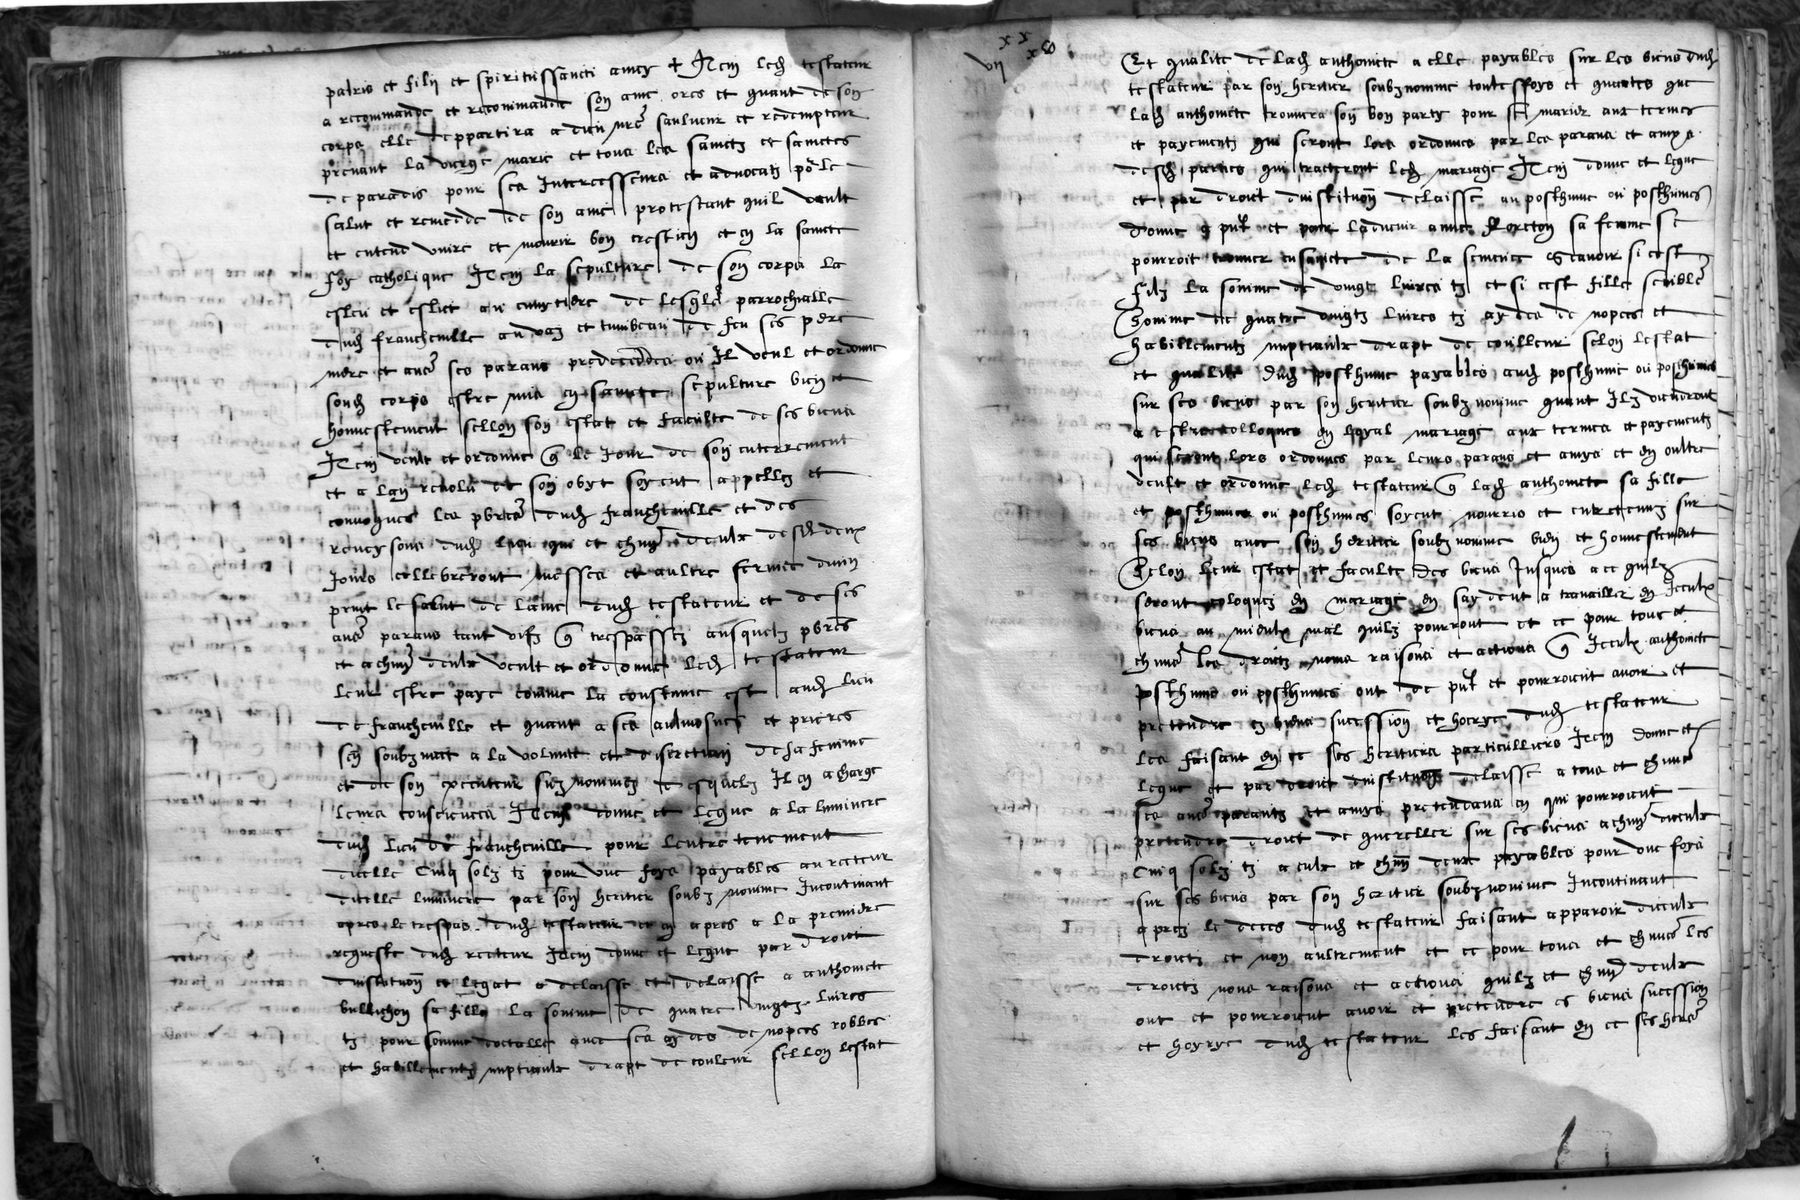 patris et filij et spiritussancti amen + Item led testateur
a recommande et recommande son ame ores et quant de son
corps elle deppartira a dieu nre saulveur et redempteur
prenant la vierge marie et tous les sainctz et sainctes
de paradis pour ses Intercesseurs et advocatz po le
salut et remedde de son ame protestant quil veult
et entend vivre et mourir bon crestien et en la saincte
foy catholique Item la sepulture de son corps la
esleu et eslit au cimytiere de lesglé parrochialle
dud francheville au vaz et tumbeau de feu ses pere
mere et aues ses parans predecedés ou Il veul et ordonne
sond corps estre mis en saincte sepulture bien et
honnestement sellon son estat et faculte de ses biens
Item veult et ordonne q le Jour de son enterrement
et a lan revolu de son obyt soyent appellez et
convoques les pbres dud francheville et des
environs dud lieu qui et chun deulx desd deux
Jours cellebreront messes et aultre service divin
pour le salut de lame dud testateur et de ses
aues parans tant vifz q trespassez ausquelz pbres
et a chun deulx veult et ordonne led testateur
leur estre paye comme la coustume est aud lieu
de francheville et quant a ses aulmosnes et prieres
sen soubzmect a la volunte et discretion de sa femme
et de son executeur suz nommez desquelz Il en charge
leurs consciences Item donne et legue a la luminere
dud lieu de francheville pour lentretenement
dicelle cinq solz tz pour une foys payables au recteur
dicelle luminere par son heritier soubz nomme Incontinant
apres le trespas dud testateur et apres a la premiere
requeste dud recteur Item donne et legue par droict
dinstitution et legat a delaisse et delaisse a anthonete
bullichon sa fille la somme de quatre vingtz livres
tz pour somme doctalle avec ses aydes de nopces robbes
et habillementz nuptiaulx drapt de couleur sellon lestat
vij xx x
Et qualite de lad anthonete a elle payables sur les biens dud
testateur par son heritier soubz nomme touteffoys et quantes que
lad anthonete trouvera son bon party pour se marier aux termes
et payementz qui seront lors ordonnes par les parans et amys
desd parties qui traicteront led mariage Item donne et legue
et par droict dinstitution delaisse au posthume ou posthumes
dont a pnt et pour ladvenir sa femme se
pourroit trouver ensaincte de la semence scavoir si cest
filz la somme de vingt livres tz et si cest fille semblable
somme de quatre vingtz livres tz aydes de nopces et
habillementz nuptiaulx drapt de coulleur selon lestat
et qualite dud posthume payables aud posthume ou posthumes
sur ses biens par son heritier soubz nomme quant Ilz viendront
a estre colloques en loyal mariage aux termes et payementz
qui seront lors ordonnes par leurs parans et amys et en oultre
veult et ordonne led testateur q lad anthonete sa fille
et posthume ou posthumes soyent nourris et entretenuz sur
ses biens avec son heritier soubz nomme bien et honnestement
selon leur estat et faculte des biens Jusques a ce quilz
seront coloquez en mariage en saydent a travailler en Iceulx
biens au mieulx mal quilz pourront et ce pour tous et
chuns les droictz noms raisons et actions q Iceulx anthonete
posthume ou posthumes ont de pnt et pourroient avoir et
pretendre es biens succession et hoerye dud testateur
les faisant en ce ses heritiers particulliers Item donne et
legue et par droict dinstitution delaisse a tous et chuns
ses aues parantz et amys pretendans en qui pourroient
pretendre droict de quereller sur ses biens a chun deulx
cinq solz tz a eulx et chun deux payables pour une foys
sur ses biens par son heritier soubz nomme Incontinant
apres le deces dud testateur faisant apparoir diceulx
droictz et non aultrement et ce pour tous et chuns les
droictz noms raisons et actions quilz et chun deulx
ont et pourroient avoir et pretendre es biens succession
et hoyrye dud testateur les faisant en ce ses heres